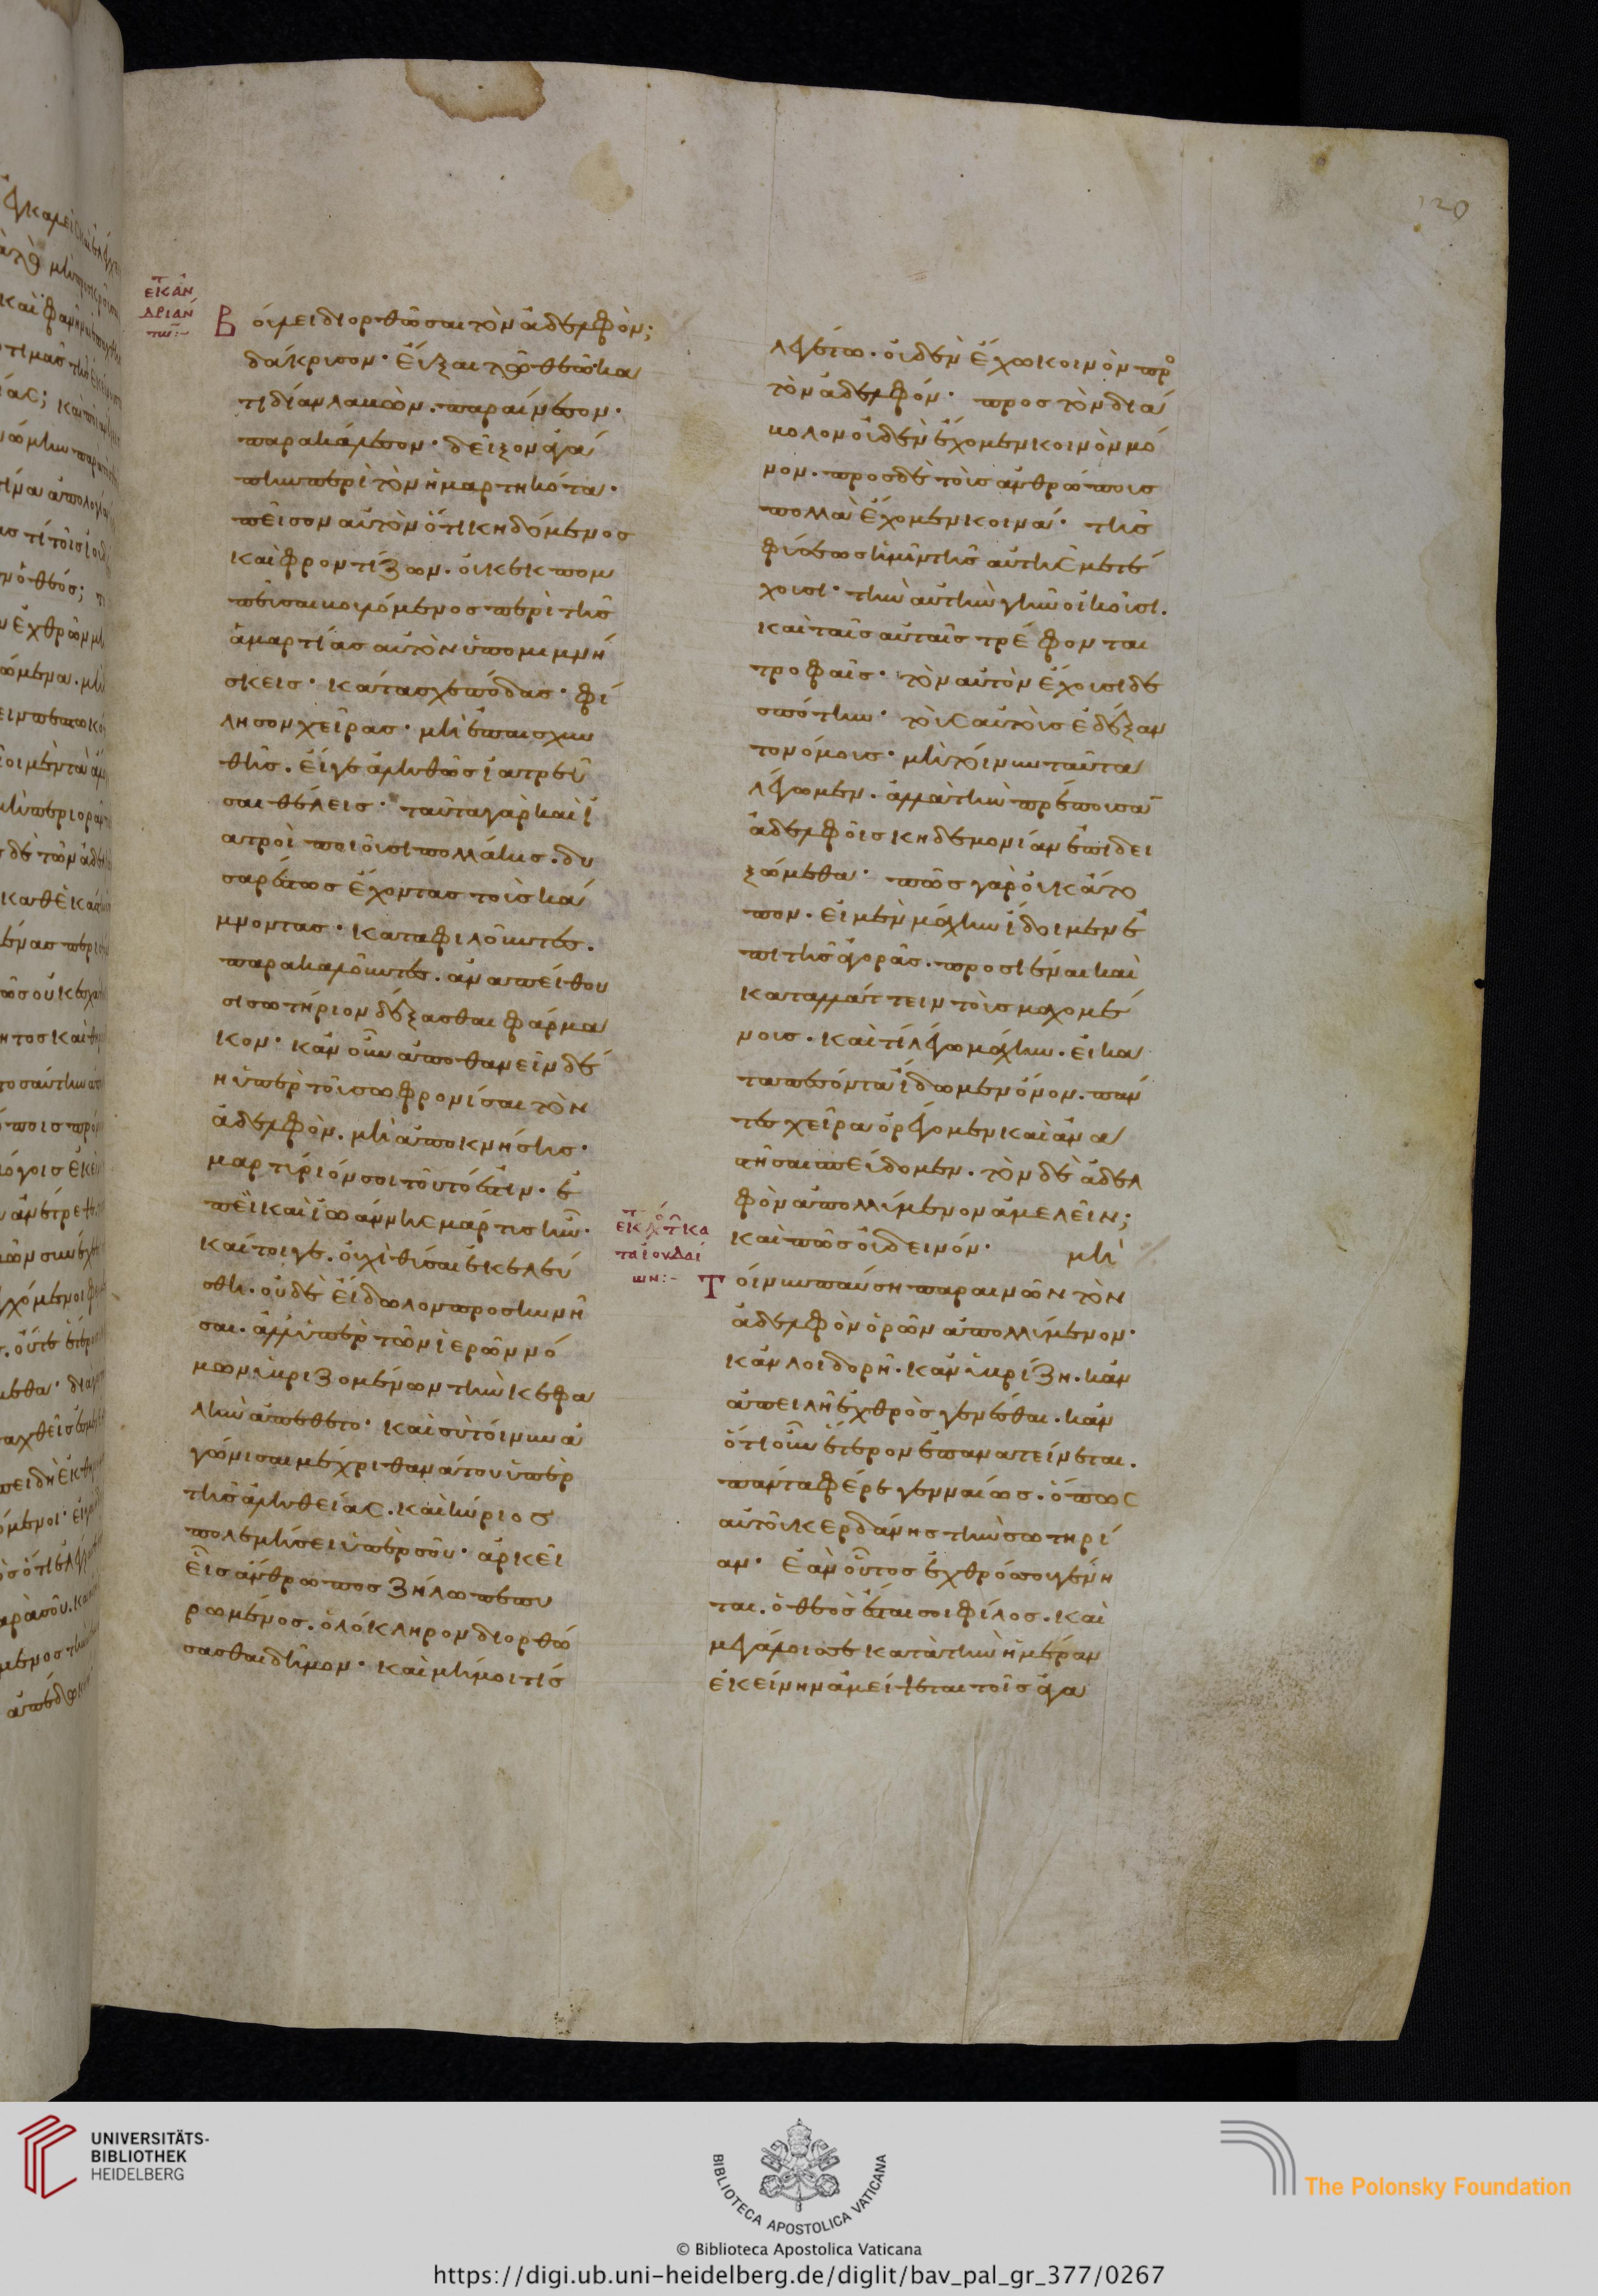 ἐκ τ ἀν
δριάν
τω:-
Βούλει διορθῶσαι τὸν ἀδελφὸν;
δάκρυσον· εὖξαι τῷ θεῷ· κα
τιδίαν λαβὼν. παραίνεσον·
παρακάλεσον· δεῖξον ἀγά
πην περὶ τὸν ἡμαρτηκότα.
πεῖσον αὐτὸν ὅτι κηδόμενος
καὶ φροντίζων. οὐκ ἐκπομ
πεῦσαι βουλόμενος περὶ τῆς
ἁμαρτίας αὐτὸν ὑπομιμνή
σκεις· κατάσχε πόδας· φί
λησον χεῖρας· μὴ ἐπαισχυν
θῆς. εἴγε ἀληθῶς ἰατρεῦ
σαι θέλεις· ταῦτα γὰρ καὶ ἰ
ατροὶ ποιοῦσι πολλάκις. δυ
σαρέστως ἔχοντας τοὺς κά
μνοντας· καταφιλοῦντες.
παρακαλοῦντες. ἀναπείθου
σι σωτήριον δέξασθαι φάρμα
κον· κἂν οὖν ἀποθανεῖν δέ
η ὑπὲρ τοῦ σωφρονίσαι τὸν
ἀδελφὸν. μὴ ἀποκνήσης·
μαρτύριόν σοι τοῦτό ἐστιν. ἐ
πεὶ καὶ ἰωάννης μάρτυς ἦν·
καίτοιγε. οὐχὶ θῦσαι ἐκελεύ
σθη. οὐδὲ εἴδωλον προσκυνῆ
σαι. ἀλλ' ὑπὲρ τῶν ἱερῶν νό
μων ὑβριζομένων τὴν κεφα
λὴν ἀπέθετο· καὶ σὺ τοίνυν ἀ
γώνισαι μέχρι θανάτου ὑπὲρ
τῆς ἀληθείας. καὶ κύριος
πολεμήσει ὑπὲρ σοῦ· ἀρκεῖ
εἷς ἄνθρωπος ζήλω πεπυ
ρωμένος. ὁλόκληρον διορθώ
σασθαι δῆμον· καὶ μή μοι τίς
λεγέτω. οὐδὲν ἔχω κοινὸν προ
τὸν ἀδελφόν· προς τὸν διά
βολον οὐδὲν ἔχομεν κοινὸν μό
νον. προς δὲ τοὺς ἀνθρώπους
πολλὰ ἔχομεν κοινά· τῆς
φύσεως ἡμῖν τῆς αὐτῆς μετέ
χουσι· τὴν αὐτὴν γῆν οἰκοῦσι.
καὶ ταῖς αὐταῖς τρέφονται
τροφαῖς· τὸν αὐτὸν ἔχουσι δε
σπότην· τοὺς αὐτοὺς ἐδέξαν
το νόμους· μὴ τοίνυν ταῦτα
λέγωμεν. ἀλλὰ τὴν πρέπουσαν
ἀδελφοῖς κηδεμονίαν ἐπιδει
ξώμεθα· πῶς γὰρ οὐκ ἄτο
πον. εἰ μὲν μάχην ἴδοιμεν ἐ
πὶ τῆς ἀγορᾶς. προσιέναι καὶ
καταλλάττειν τοὺς μαχομέ
νους. καὶ τί λέγω μάχην. εἰ κα
ταπεσόντα ἴδωμεν ὄνον. πάν
τες χεῖρα ὀρέγομεν καὶ ἀνα
στῆσαι σπεύδομεν. τὸν δὲ ἀδελ
φὸν ἀπολλύμενον ἀμελεῖν;
καὶ πῶς οὐ δεινόν· μὴ
ἐκ τ κτ κα
τα ἰουδαί
ων:-
Τοίνυν παύση παραινῶν τὸν
ἀδελφὸν ὁρῶν ἀπολλύμενον·
κἂν λοιδορῆ. κἂν ὑβρίζη. κἂν
ἀπειλῆ ἐχθρὸς γενέσθαι. κἂν
ὁτιοῦν ἕτερον ἐπανατείνεται.
πάντα φέρε γενναίως. ὅπως
αὐτοῦ κερδάνης τὴν σωτηρί
αν· ἐὰν οὗτος ἐχθρός σοι γένη
ται. ὁ θεὸς ἔσται σοι φίλος. καὶ
μεγάλοις σε κατὰ τὴν ἡμέραν
ἐκείνην ἀμείψεται τοῖς ἀγα
120
UNIVERSITÄTS-
BIBLIOTHEK
HEIDELBERG
BIBLIOTECA APOSTOLICA VATICANA
© Biblioteca Apostolica Vaticana
The Polonsky Foundation
https://digi.ub.uni-heidelberg.de/diglit/bav_pal_gr_377/0267